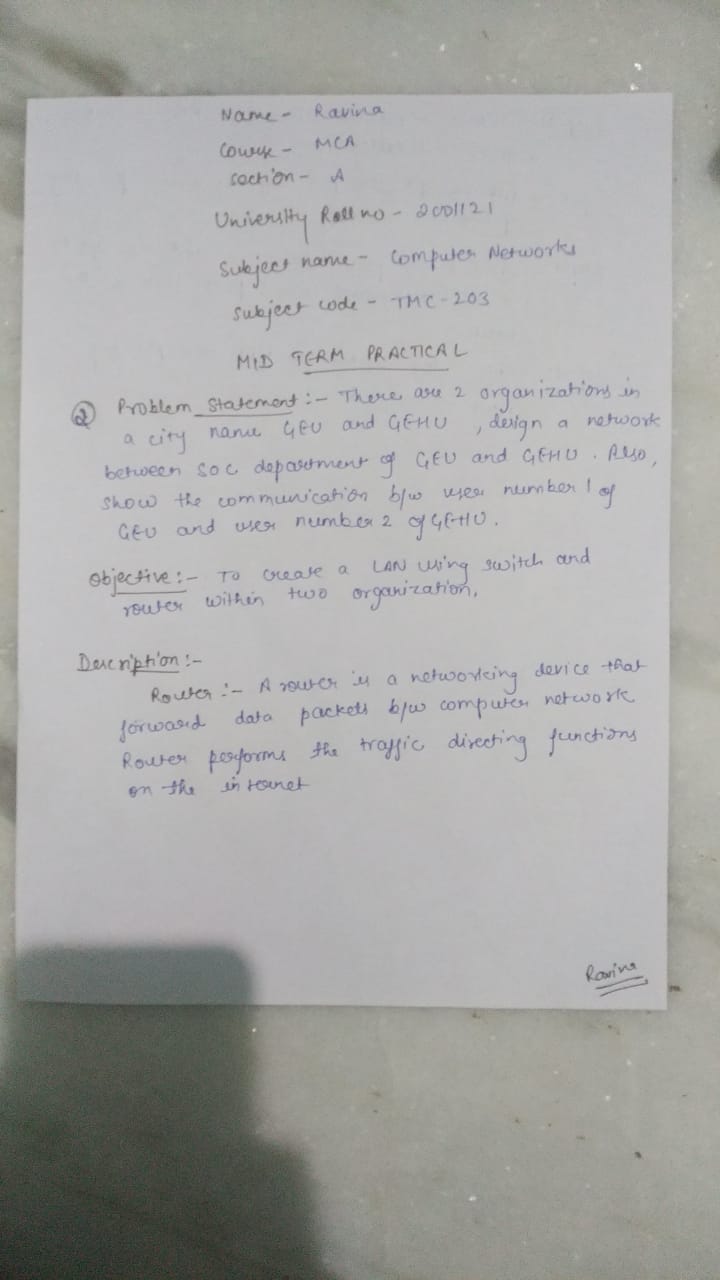 Name - Ravina
Course - MCA
Section - A
University Roll no - 2001121
Subject name - Computer Networks
Subject code - TMC-203
MID TERM PRACTICAL
② Problem Statement :- There are 2 organizations in
a city name GEU and GEHU , design a network
between SOC department of GEU and GEHU . Also,
show the communication b/w user number 1 of
GEU and user number 2 of GEHU.
Objective :- To create a LAN using switch and
router within two organization.
Description :-
Router :- A router is a networking device that
forward data packets b/w computer network
Router performs the traffic directing functions
on the internet
Ravina